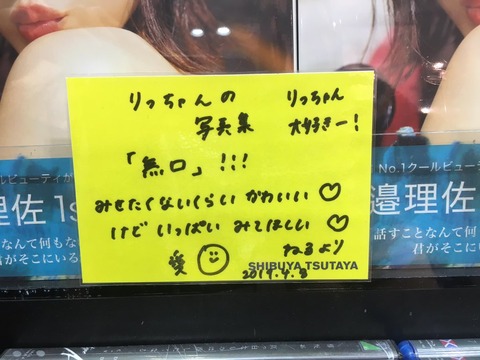 りっちゃんの
写真集
りっちゃん
大好きー!
「無口」!!!
みせたくないくらい かわいい♡
けど いっぱい みてほしい♡
愛
ねるより
SHIBUYA TSUTAYA
2019.4.8
ールビューティが
理佐 1s
なんて何もな
君がそこにいる
No.1クールビューテ
邉理佐
話すことなんて何
君がそこに